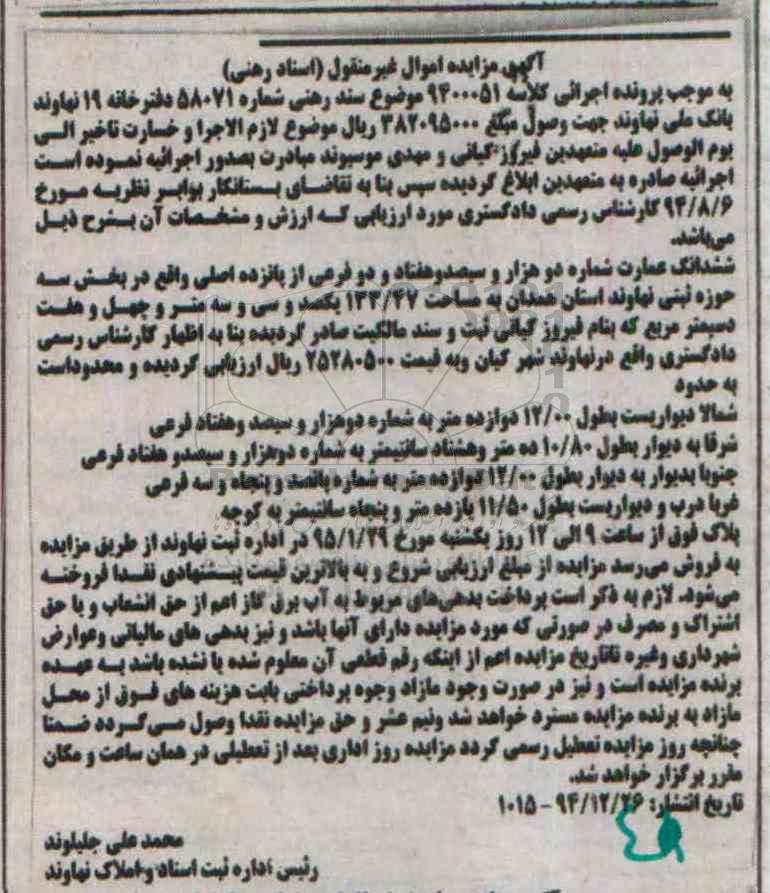 آگهی مزایده اموال غیرمنقول (اسناد رهنی)
به موجب پرونده اجرائی کلاسه ۹۴۰۰۰۵۱ موضوع سند رهنی شماره ۵۸۰۷۱ دفترخانه ۱۹ نهاوند
بانک ملی نهاوند جهت وصول مبلغ ۳۸۲۰۹۵۰۰۰ ریال موضوع لازم الاجرا و خسارت تاخیر الی
یوم الوصول علیه متعهدین فیروز کیانی و مهدی موسیوند مبادرت بصدور اجرائیه نموده است
اجرائیه صادره به متعهدین ابلاغ گردیده سپس بنا به تقاضای بستانکار برابر نظریه مورخ
۹۴/۸/۶ کارشناس رسمی دادگستری مورد ارزیابی که ارزش و مشخصات آن بشرح ذیل
می‌باشد.
ششدانگ عمارت شماره دو هزار و سیصدوهفتاد و دو فرعی از پانزده اصلی واقع در بخش سه
حوزه ثبتی نهاوند استان همدان به مساحت ۱۳۳/۴۷ یکصد و سی و سه متر و چهل و هفت
دسیمتر مربع که بنام فیروز کیانی ثبت و سند مالکیت صادر گردیده بنا به اظهار کارشناس رسمی
دادگستری واقع درنهاوند شهر کیان وبه قیمت ۲۵۲۸۰۵۰۰ ریال ارزیابی گردیده و محدوداست
به حدود
شمالا دیواریست بطول ۱۲/۰۰ دوازده متر به شماره دوهزار و سیصد وهفتاد فرعی
شرقا به دیوار بطول ۱۰/۸۰ ده متر وهشتاد سانتیمتر به شماره دوهزار و سیصدو هفتاد فرعی
جنوبا بدیوار به دیوار بطول ۱۲/۰۰ دوازده متر به شماره پانصد و پنجاه و سه فرعی
غربا درب و دیواریست بطول ۱۱/۵۰ یازده متر و پنجاه سانتیمتر به کوچه
پلاک فوق از ساعت ۹ الی ۱۲ روز یکشنبه مورخ ۹۵/۱/۲۹ در اداره ثبت نهاوند از طریق مزایده
به فروش می‌رسد مزایده از مبلغ ارزیابی شروع و به بالاترین قیمت پیشنهادی نقدا فروخته
می‌شود. لازم به ذکر است پرداخت بدهی‌های مربوط به آب برق گاز اعم از حق انشعاب و یا حق
اشتراک و مصرف در صورتی که مورد مزایده دارای آنها باشد و نیز بدهی های مالیاتی وعوارض
شهرداری وغیره تاتاریخ مزایده اعم از اینکه رقم قطعی آن معلوم شده یا نشده باشد به عهده
برنده مزایده است و نیز در صورت وجود مازاد وجوه پرداختی بابت هزینه های فوق از محل
مازاد به برنده مزایده مسترد خواهد شد ونیم عشر و حق مزایده نقدا وصول می‌گردد ضمنا
چنانچه روز مزایده تعطیل رسمی گردد مزایده روز اداری بعد از تعطیلی در همان ساعت و مکان
مقرر برگزار خواهد شد.
تاریخ انتشار: ۹۴/۱۲/۲۶ - ۱۰۱۵
محمد علی جلیلوند
رئیس اداره ثبت اسناد و املاک نهاوند